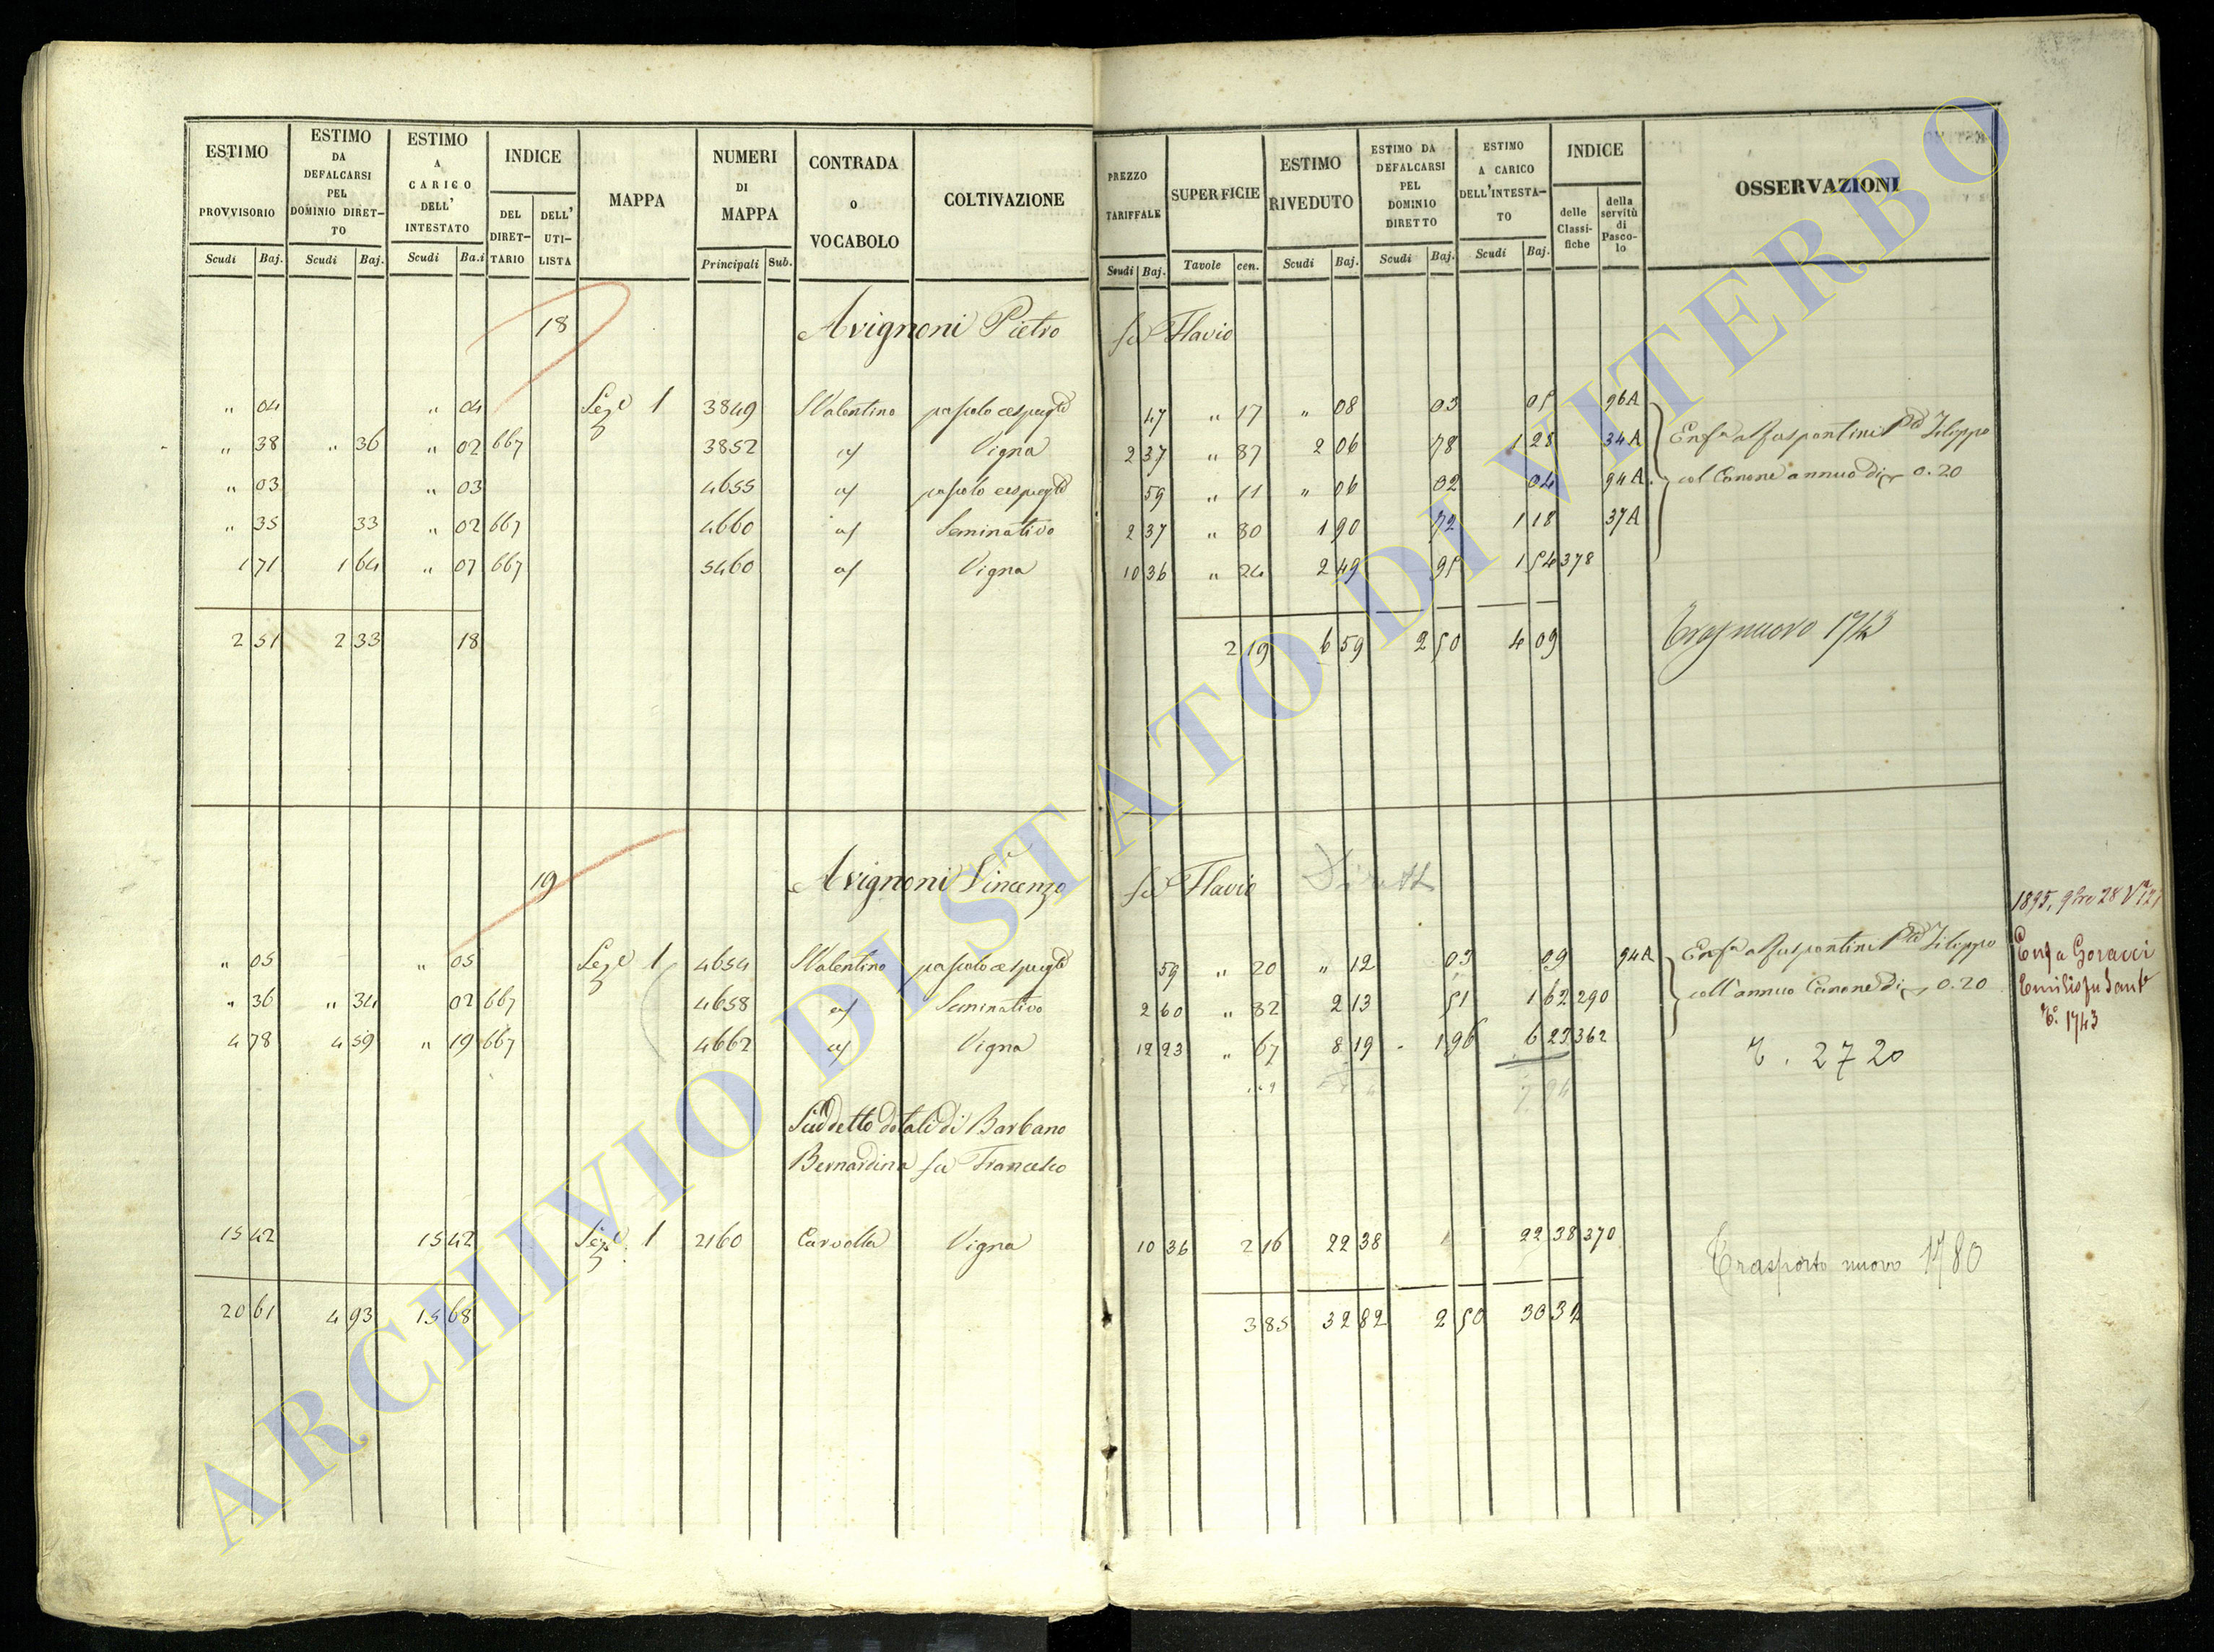 ESTIMO PROVVISORIO | ESTIMO DA DEFALCARSI PEL DOMINIO DIRETTO | ESTIMO A CARICO DELL' INTESTATO | INDICE | MAPPA | NUMERI DI MAPPA | CONTRADA o VOCABOLO | COLTIVAZIONE | PREZZO TARIFFALE | SUPERFICIE | ESTIMO RIVEDUTO | ESTIMO DA DEFALCARSI PEL DOMINIO DIRETTO | ESTIMO A CARICO DELL'INTESTATO | INDICE | OSSERVAZIONI
DEL DIRETTARIO | DELL' UTILISTA | delle Classifiche | della servitù di Pascolo
Scudi | Baj. | Scudi | Baj. | Scudi | Ba.i | Principali | Sub. | Scudi | Baj. | Tavole | cen. | Scudi | Baj. | Scudi | Baj. | Scudi | Baj.
18 Avignoni Pietro fu Flavio
" 04 " 04 Sez.e 1 3849 S Valentino pascolo cespugto 47 " 17 " 08 03 05 96A
" 38 " 36 " 02 667 3852 Vigna 2 37 " 87 2 06 78 1 28 34A Filippo
" 03 " 03 4655 pascolo cespugto 59 " 11 " 06 02 04 94A col Canone annuo di 0.20
" 35 33 " 02 667 4660 Seminativo 2 37 " 80 1 90 72 1 18 37A
1 71 1 64 " 07 667 5460 Vigna 10 36 " 24 2 49 95 1 54 378
2 51 2 33 18 2 19 6 59 2 50 4 09 nuovo 1743
19 Avignoni Vincenzo fu Flavio
1895, 9bre 28
" 05 " 05 Sez.e 1 4654 S Valentino pascolo cespugto 59 " 20 " 12 03 09 94A Filippo
Enf.a Goracci
" 36 " 34 02 667 4658 Seminativo 2 60 " 82 2 13 51 1 62 290 coll'annuo Canone di 0.20
Emilio fu Sante
T.o 1743
4 78 4 59 " 19 667 4662 Vigna 12 23 " 67 8 19 1 96 6 23 362
T. 2720
Suddetto dotali di Barbano
Bernardina fu Francesco
15 42 15 42 Sez.e 1 2160 Carvolla Vigna 10 36 2 16 22 38 22 38 370
Trasporto nuovo 1780
20 61 4 93 15 68 3 85 32 82 2 50 30 32
ARCHIVIO DI STATO DI VITERBO